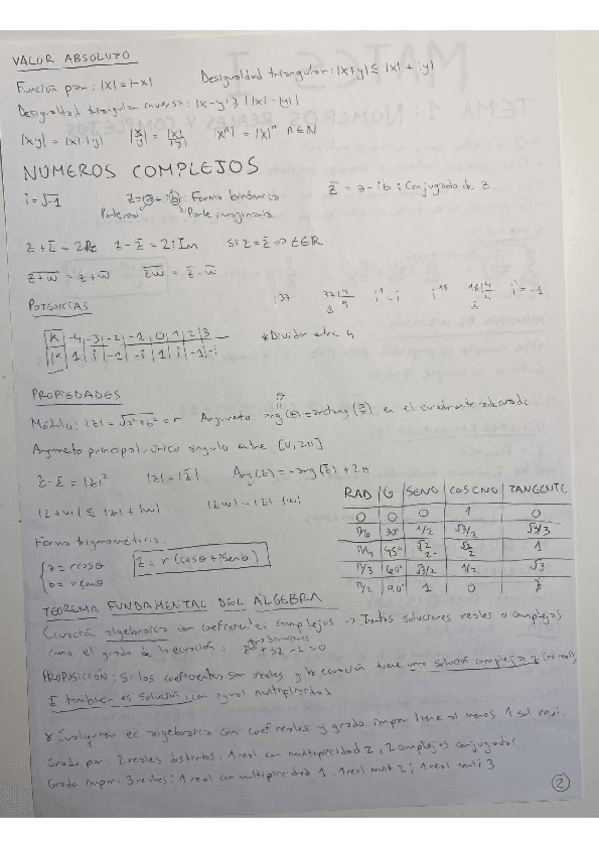 VALOR ABSOLUTO
Función par: |x| = |-x|    Desigualdad triangular: |x+y| ≤ |x| + |y|
Desigualdad triangular inversa: |x-y| ≥ ||x| - |y||
|xy| = |x| |y|    |x/y| = |x|/|y|    |xⁿ| = |x|ⁿ n∈N
NÚMEROS COMPLEJOS
i = √-1    z = a + ib : Forma binómica    z̄ = a - ib : Conjugado de z
Parte real    Parte imaginaria
z + z̄ = 2Re    z - z̄ = 2i Im    si z = z̄ => z∈R
z+w = z̄ + w̄    zw = z̄ · w̄
POTENCIAS
K | -4 | -3 | -2 | -1 | 0 | 1 | 2 | 3
*Dividir entre 4
PROPIEDADES
Módulo: |z| = √a²+b² = r    Argumento: arg(z) = arctang    en el cuadrante adecuado
Argumento principal, único ángulo entre
z · z̄ = |z|²    |z| = |z̄|    Arg(z) = -arg(z̄) + 2π
|z+w| ≤ |z| + |w|    |zw| = |z| · |w|
RAD | G | SENO | COSENO | TANGENTE
0 | 0 | 0 | 1 | 0
π/6 | 30° | 1/2 | √3/2 | √3/3
π/4 | 45° | √2/2 | √2/2 | 1
π/3 | 60° | √3/2 | 1/2 | √3
π/2 | 90° | 1 | 0
Forma trigonométrica:
a = r cosθ    z = r (cosθ + i senθ)
b = r senθ
TEOREMA FUNDAMENTAL DEL ALGEBRA
Ecuación algebraica con coeficientes complejos -> Tantas soluciones reales o complejas
como el grado de la ecuación:    3 soluciones
PROPOSICIÓN: Si los coeficientes son reales y la ecuación tiene una solución compleja z (no real),
z̄ también es solución, con igual multiplicidad
* Cualquier ec. algebraica con coef reales y grado impar tiene al menos 1 sol real.
Grado par: 2 reales distintos, 1 real con multiplicidad 2, 2 complejos conjugados
Grado impar: 3 reales; 1 real con multiplicidad 1, 1 real mult 2; 1 real mult 3
2